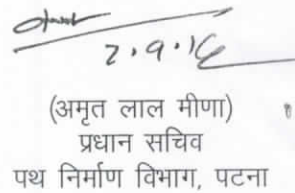 2.9.16
(अमृत लाल मीणा)
प्रधान सचिव
पथ निर्माण विभाग, पटना